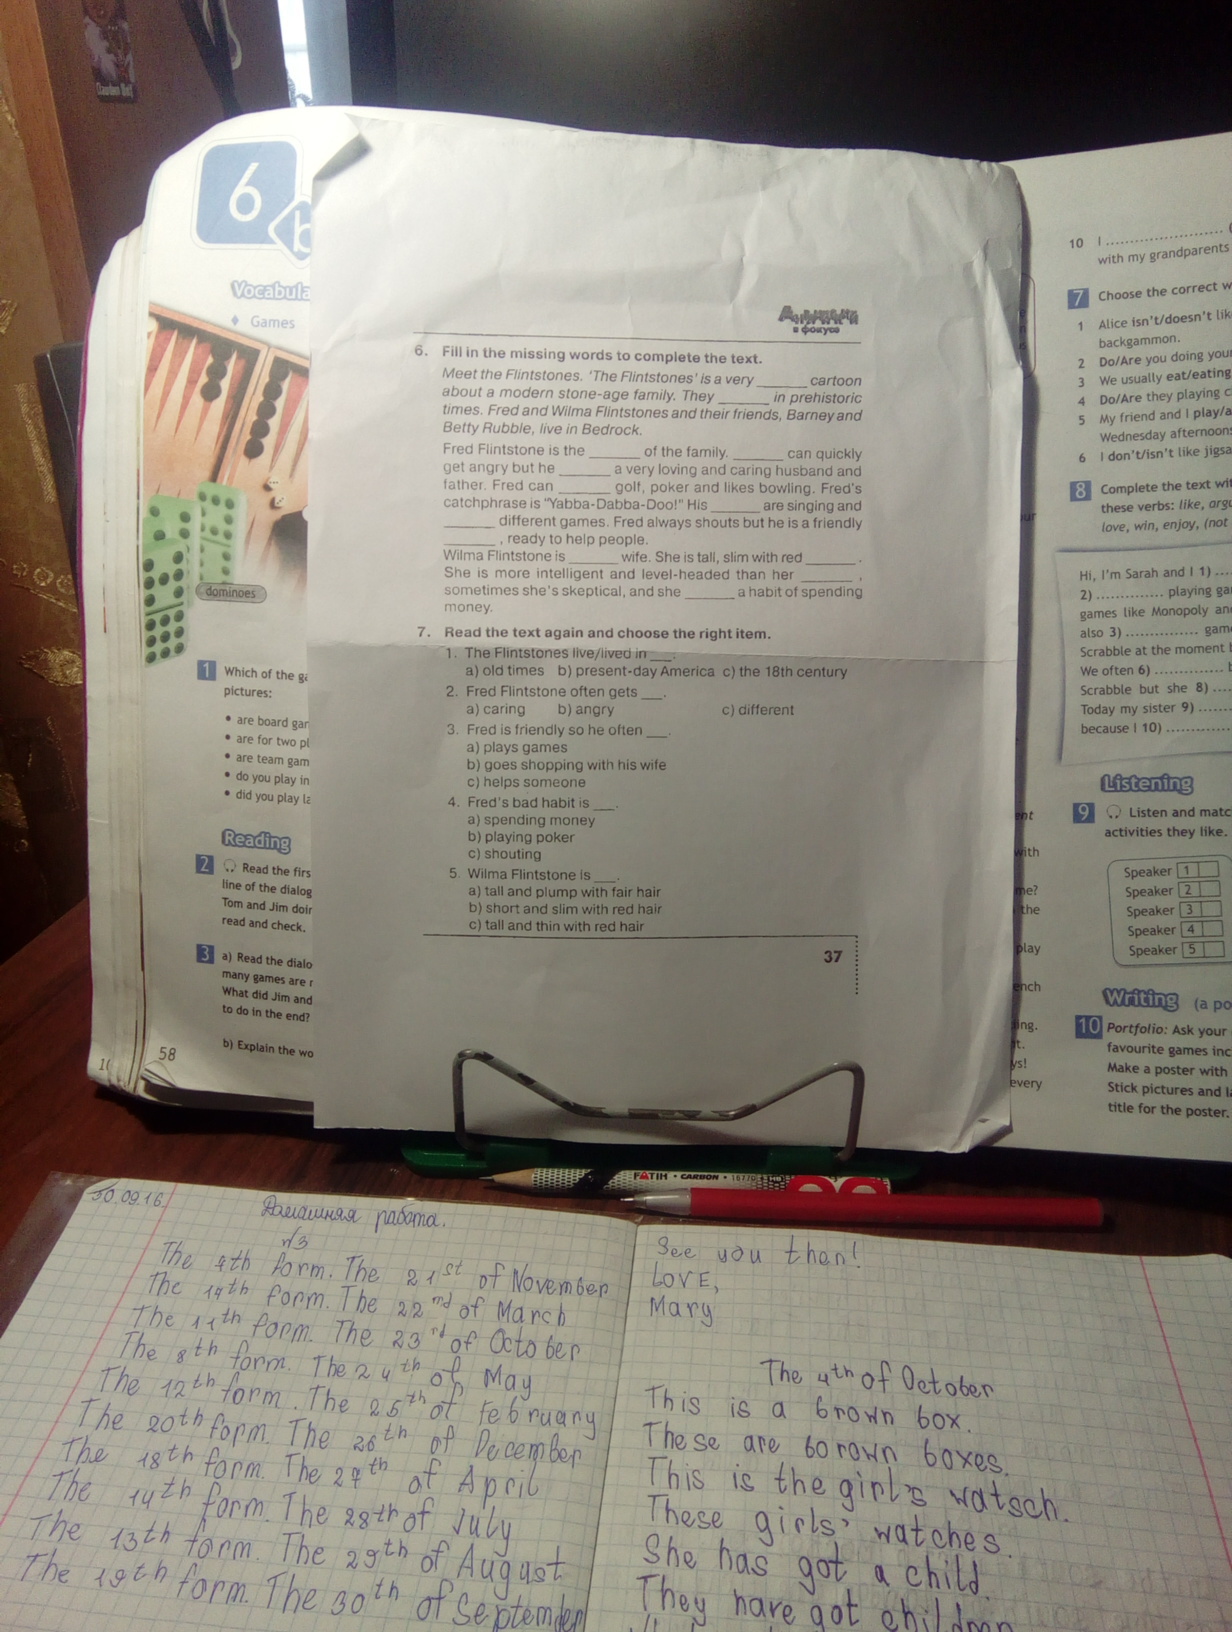 Garden Hot
6
b
Vocabula
Games
dominoes
1 Which of the ga
pictures:
• are board gar
• are for two pl
• are team gam
• do you play in
• did you play la
Reading
2 Read the firs
line of the dialog
Tom and Jim doir
read and check.
3 a) Read the dialo
many games are r
What did Jim and
to do in the end?
b) Explain the wo
58
Анимания
в фокусе
6. Fill in the missing words to complete the text.
Meet the Flintstones. 'The Flintstones' is a very ______ cartoon
about a modern stone-age family. They ______ in prehistoric
times. Fred and Wilma Flintstones and their friends, Barney and
Betty Rubble, live in Bedrock.
Fred Flintstone is the ______ of the family. ______ can quickly
get angry but he ______ a very loving and caring husband and
father. Fred can ______ golf, poker and likes bowling. Fred's
catchphrase is "Yabba-Dabba-Doo!" His ______ are singing and
______ different games. Fred always shouts but he is a friendly
______ , ready to help people.
Wilma Flintstone is ______ wife. She is tall, slim with red ______ .
She is more intelligent and level-headed than her ______ ,
sometimes she's skeptical, and she ______ a habit of spending
money.
7. Read the text again and choose the right item.
1. The Flintstones live/lived in ___.
a) old times b) present-day America c) the 18th century
2. Fred Flintstone often gets ___.
a) caring b) angry c) different
3. Fred is friendly so he often ___.
a) plays games
b) goes shopping with his wife
c) helps someone
4. Fred's bad habit is ___.
a) spending money
b) playing poker
c) shouting
5. Wilma Flintstone is ___.
a) tall and plump with fair hair
b) short and slim with red hair
c) tall and thin with red hair
37
ent
with
me?
the
play
ench
ing.
t.
ys!
every
10 I ........................ (
with my grandparents
7 Choose the correct w
1 Alice isn't/doesn't lik
backgammon.
2 Do/Are you doing your
3 We usually eat/eating
4 Do/Are they playing c
5 My friend and I play/a
Wednesday afternoons
6 I don't/isn't like jigsa
8 Complete the text wit
these verbs: like, argu
love, win, enjoy, (not
Hi, I'm Sarah and I 1) ....
2) .............. playing ga
games like Monopoly an
also 3) .............. gam
Scrabble at the moment b
We often 6) .............. b
Scrabble but she 8) ....
Today my sister 9) ....
because I 10) ..............
Listening
9 Listen and matc
activities they like.
Speaker 1
Speaker 2
Speaker 3
Speaker 4
Speaker 5
Writing (a po
10 Portfolio: Ask your
favourite games inc
Make a poster with
Stick pictures and la
title for the poster.
FATIH • CARBON •
30.09.16
Домашняя работа.
№3
The 4th form. The 21st of November
The 14th form. The 22nd of March
The 11th form. The 23rd of October
The 8th form. The 24th of May
The 12th form. The 25th of February
The 20th form. The 26th of December
The 18th form. The 27th of April
The 14th form. The 28th of July
The 13th form. The 29th of August
The 19th form. The 30th of September
See you then!
Love,
Mary
The 4th of October
This is a brown box.
These are borown boxes.
This is the girl's watsch.
These girls' watches.
She has got a child.
They have got children